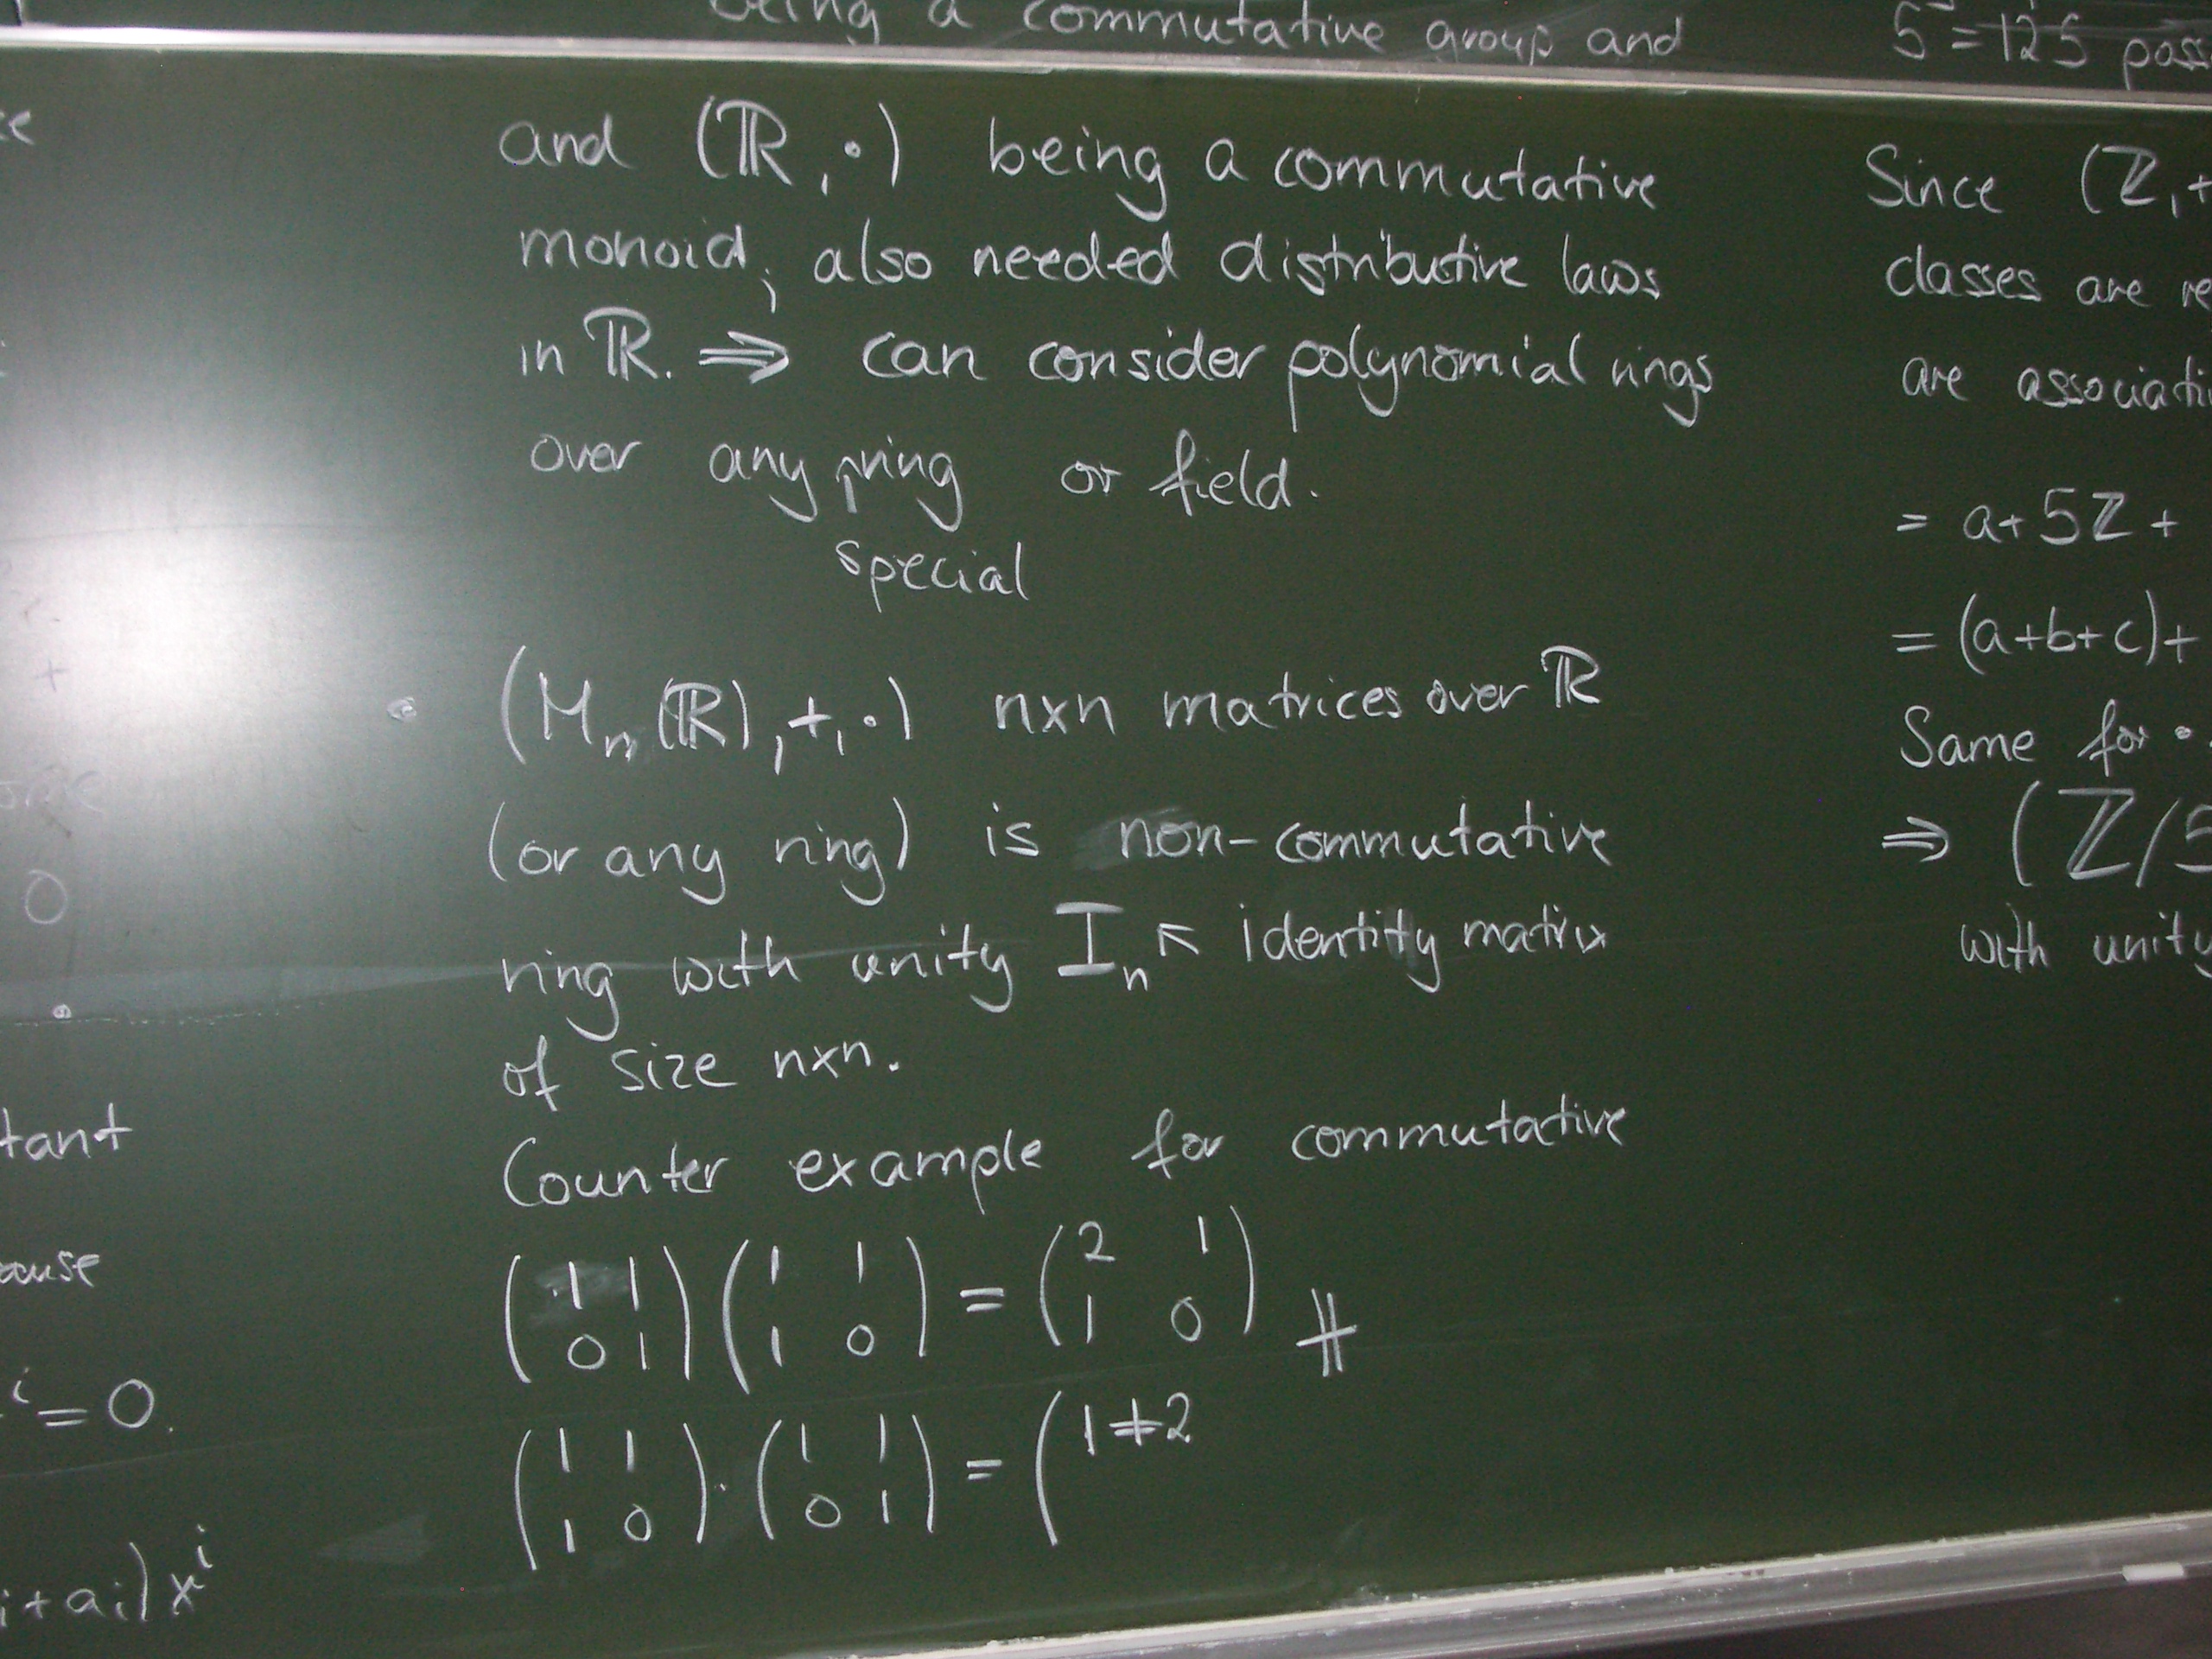 being a commutative group and
and (ℝ, ·) being a commutative
monoid; also needed distributive laws
in ℝ. ⇒ can consider polynomial rings
over any ring or field.
special
• (Mn(ℝ), +, ·) n×n matrices over ℝ
(or any ring) is non-commutative
ring with unity In ↖ identity matrix
of size n×n.
Counter example for commutative
(1 1; 0 1)(1 1; 1 0) = (2 1; 1 0) ≠
(1 1; 1 0)·(1 1; 0 1) = (1≠2
tant
i = 0.
i + ai) x^i
0
= 125
Since (ℤ, +
classes are re
are associati
= a+5ℤ +
= (a+b+c)+
Same for •.
⇒ (ℤ/5
with unity